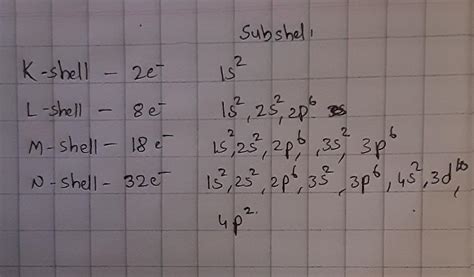 Subshell
K-shell – 2e⁻ 1s²
L-shell – 8e⁻ 1s², 2s², 2p⁶
M-shell – 18e⁻ 1s², 2s², 2p⁶, , 3s², 3p⁶
N-shell – 32e⁻ 1s², 2s², 2p⁶, 3s², 3p⁶, 4s², 3d¹⁰,
4p².